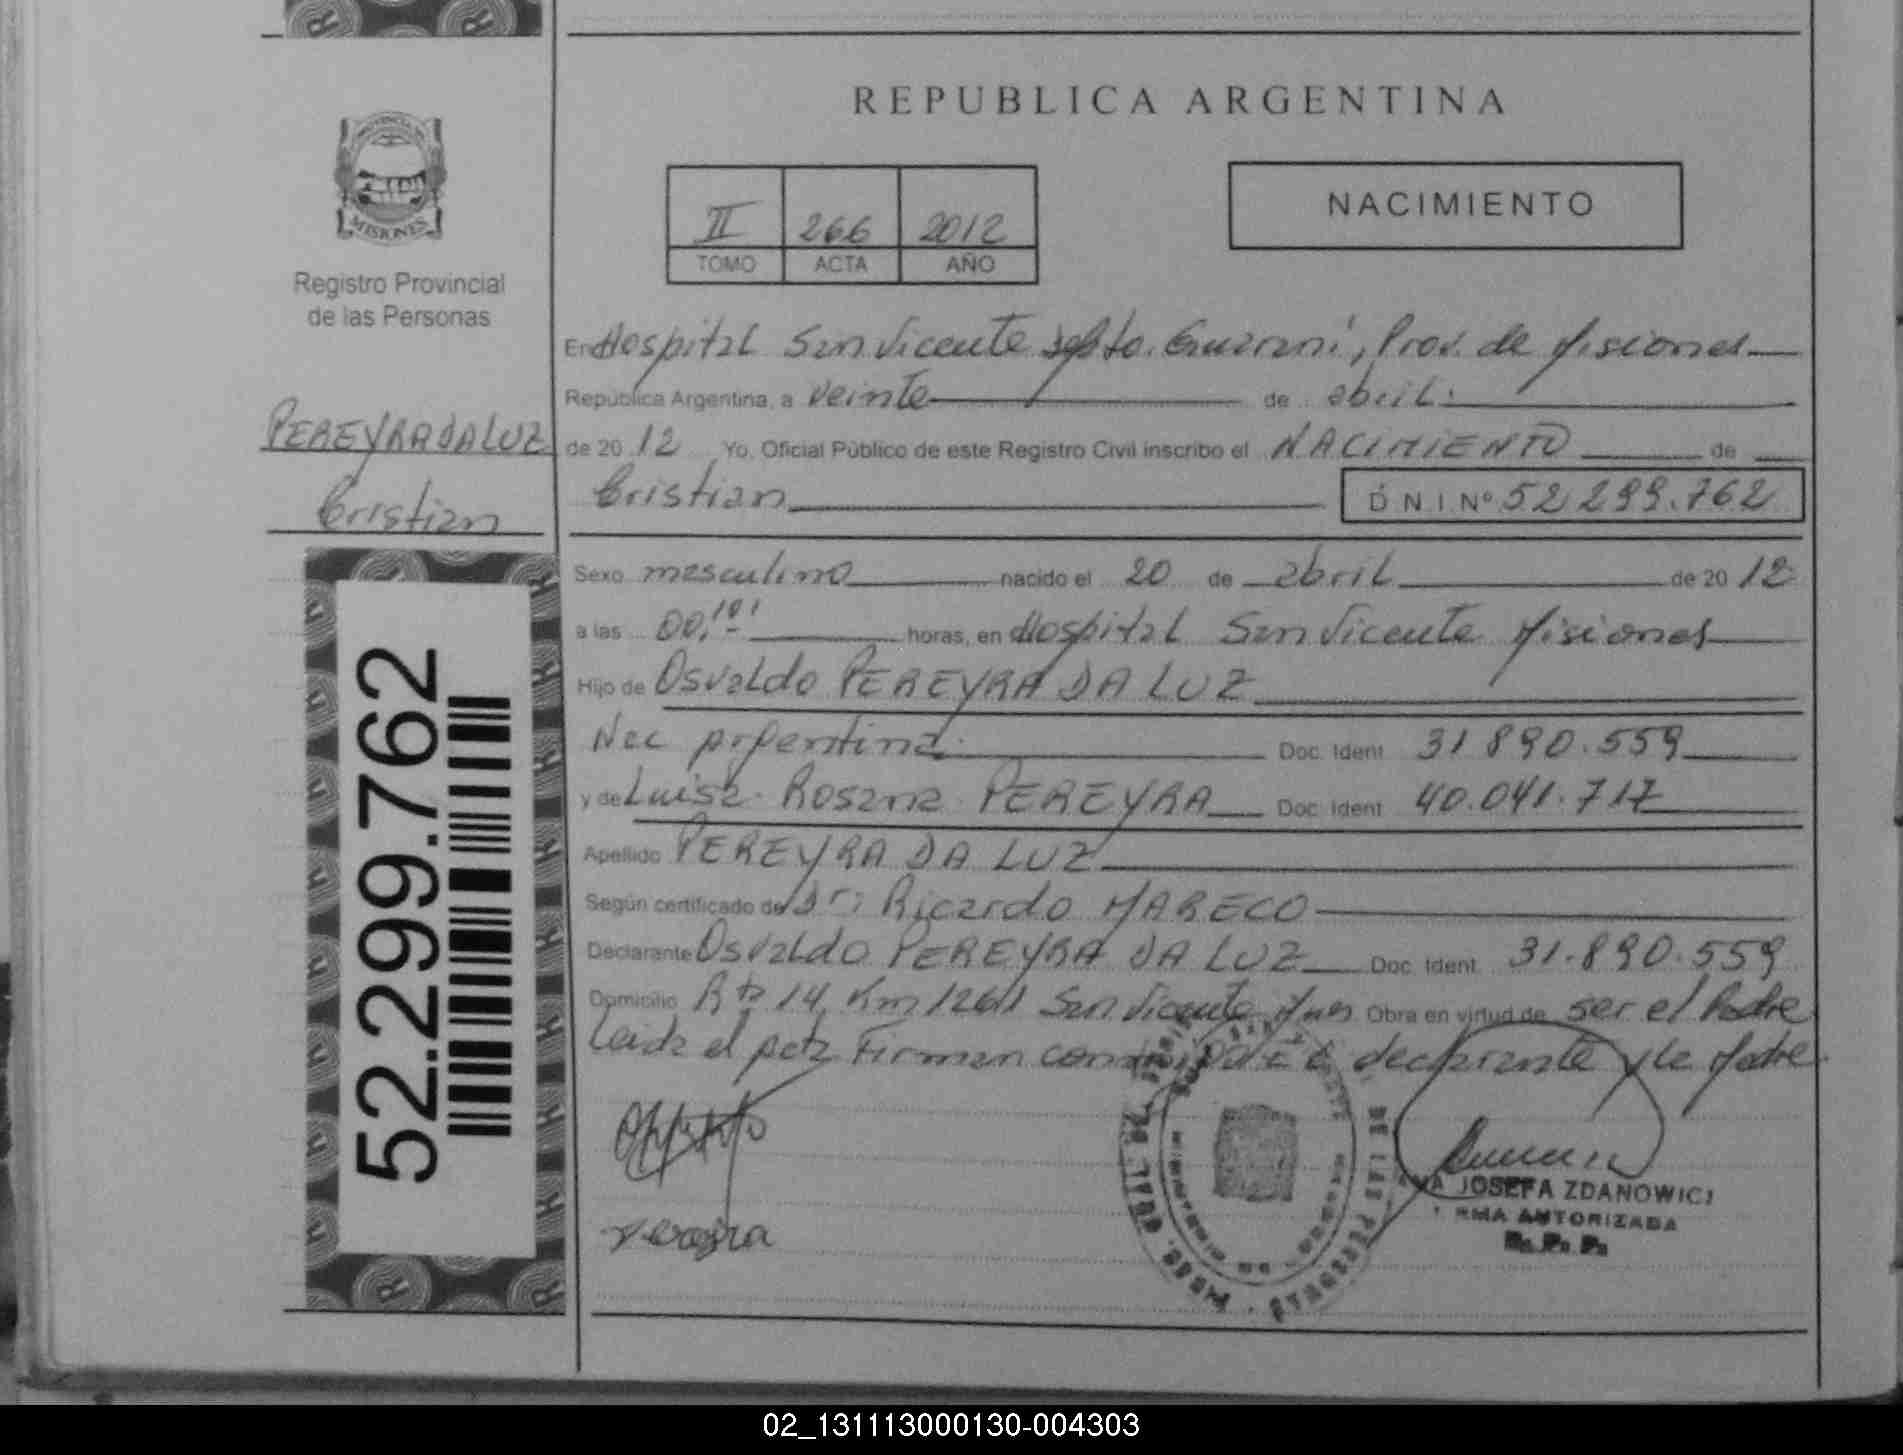 REPUBLICA ARGENTINA
PROVINCIA DE
MISIONES
Registro Provincial
de las Personas
II 266 2012
TOMO ACTA AÑO
NACIMIENTO
PEREYRA DA LUZ
Cristian
52.299.762
En Hospital San Vicente Dpto. Guaraní, Prov. de Misiones
República Argentina, a veinte de abril
de 20 12 Yo, Oficial Público de este Registro Civil inscribo el NACIMIENTO de
Cristian D N I Nº 52 299.762
Sexo masculino nacido el 20 de abril de 20 12
a las 00,10' horas, en Hospital San Vicente Misiones
Hijo de Osvaldo PEREYRA DA LUZ
Nac Argentina Doc. Ident 31 890.559
y de Luisa Rosana PEREYRA Doc. Ident 40.041.717
Apellido PEREYRA DA LUZ
Según certificado de Dr: Ricardo MARECO
Declarante Osvaldo PEREYRA DA LUZ Doc. Ident. 31.890.559
Domicilio Rta 14, Km 1261 San Vicente Mnes Obra en virtud de ser el Padre
Leida el Acta Firman declarante y la Madre
DE LAS PERSONAS
JOSEFA ZDANOWICZ
FIRMA AUTORIZADA
R. P. P.
02_131113000130-004303